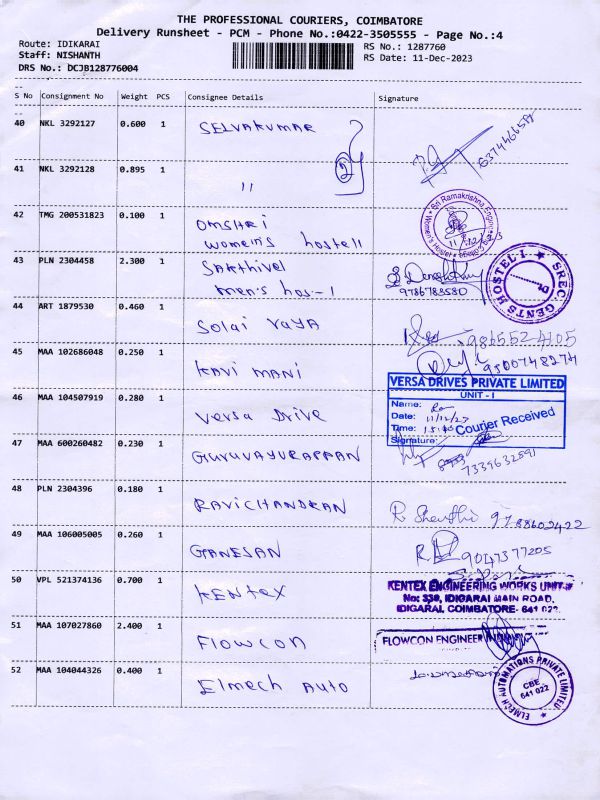 THE PROFESSIONAL COURIERS, COIMBATORE
Delivery Runsheet - PCM - Phone No.:0422-3505555 - Page No.:4
Route: IDIKARAI
Staff: NISHANTH
DRS No.: DCJB128776004
RS No.: 1287760
RS Date: 11-Dec-2023
S No Consignment No Weight PCS Consignee Details Signature
40 NKL 3292127 0.600 1 SELVAKUMAR 2 6374466587
41 NKL 3292128 0.895 1 "
42 TMG 200531823 0.100 1 OMSHRI
women's hostell
Sri Ramakrishna Engineering College
Women's Hostel
43 PLN 2304458 2.300 1 SAKTHIVEL
men's hos-1
9786783580
SREC GENTS HOSTEL-I
Dt.
44 ART 1879530 0.460 1 Solai raja 9865524105
45 MAA 102686048 0.250 1 KAVI MANI 9500748274
46 MAA 104507919 0.280 1 Versa Drive
VERSA DRIVES PRIVATE LIMITED
UNIT - I
Name:
Date:
Time:
Signature:
Courier Received
47 MAA 600260482 0.230 1 GURUVAYURAPPAN 7339632591
48 PLN 2304396 0.180 1 RAVICHANDRAN 9788602422
49 MAA 106005005 0.260 1 GANESAN 9047377205
50 VPL 521374136 0.700 1 KENTEX
KENTEX ENGINEERING WORKS UNIT-II
No: 339, IDIGARAI MAIN ROAD,
IDIGARAI, COIMBATORE- 641 022.
51 MAA 107027860 2.400 1 FLOWCON
FLOWCON ENGINEER
52 MAA 104044326 0.400 1 Elmech Auto
ELMECH AUTOMATIONS PRIVATE LIMITED
CBE
641 022